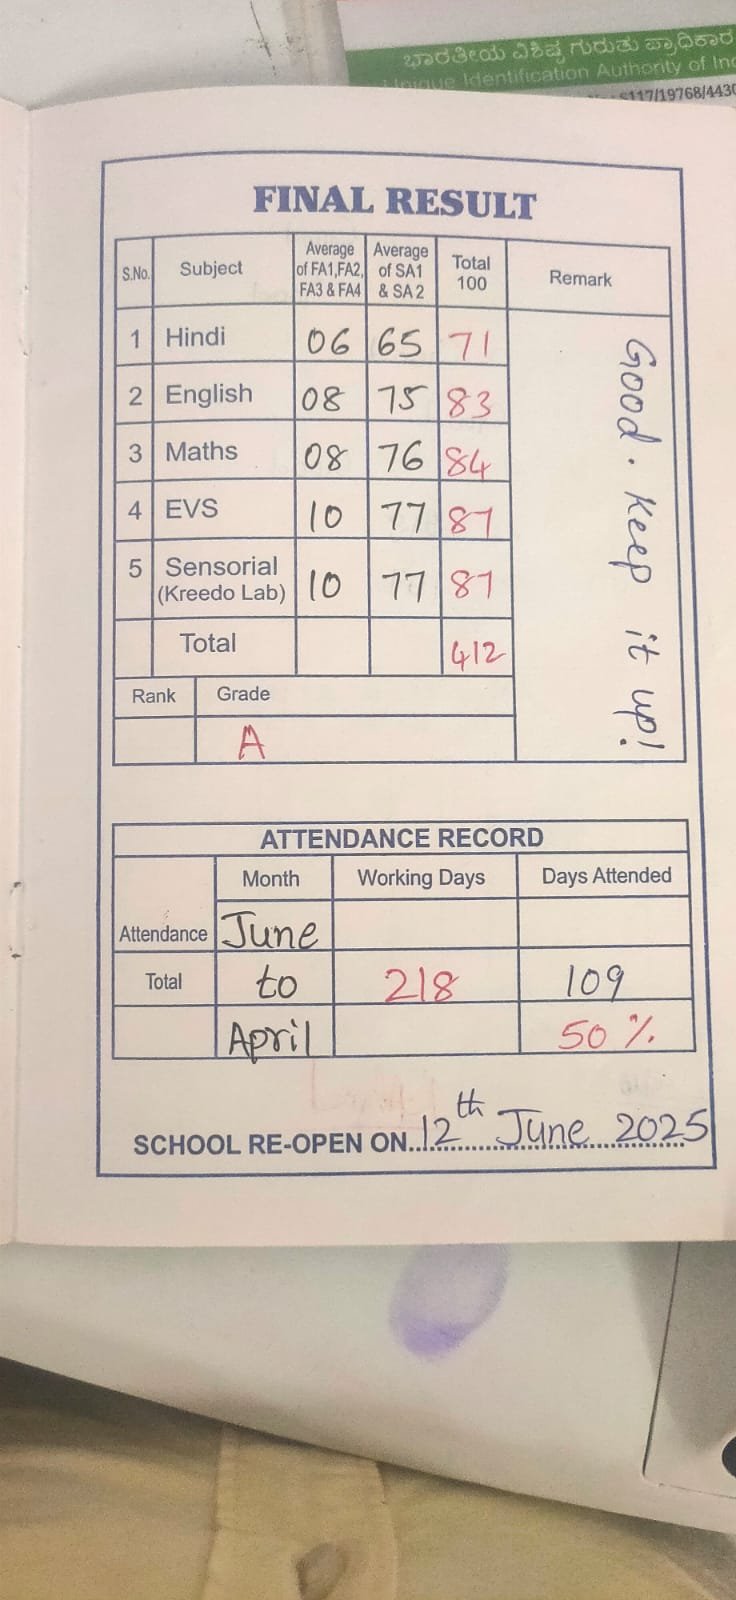 ಭಾರತೀಯ ವಿಶಿಷ್ಟ ಗುರುತು ಪ್ರಾಧಿಕಾರ
Unique Identification Authority of Ind
S117/19768/4430
FINAL RESULT
S.No. Subject Average of FA1,FA2, FA3 & FA4 Average of SA1 & SA 2 Total 100 Remark
1 Hindi 06 65 71
2 English 08 75 83
3 Maths 08 76 84
4 EVS 10 77 87
5 Sensorial (Kreedo Lab) 10 77 87
Total 412
Good. Keep it up!
Rank Grade
A
ATTENDANCE RECORD
Month Working Days Days Attended
Attendance June
Total to 218 109
April 50 %
SCHOOL RE-OPEN ON 12th June 2025